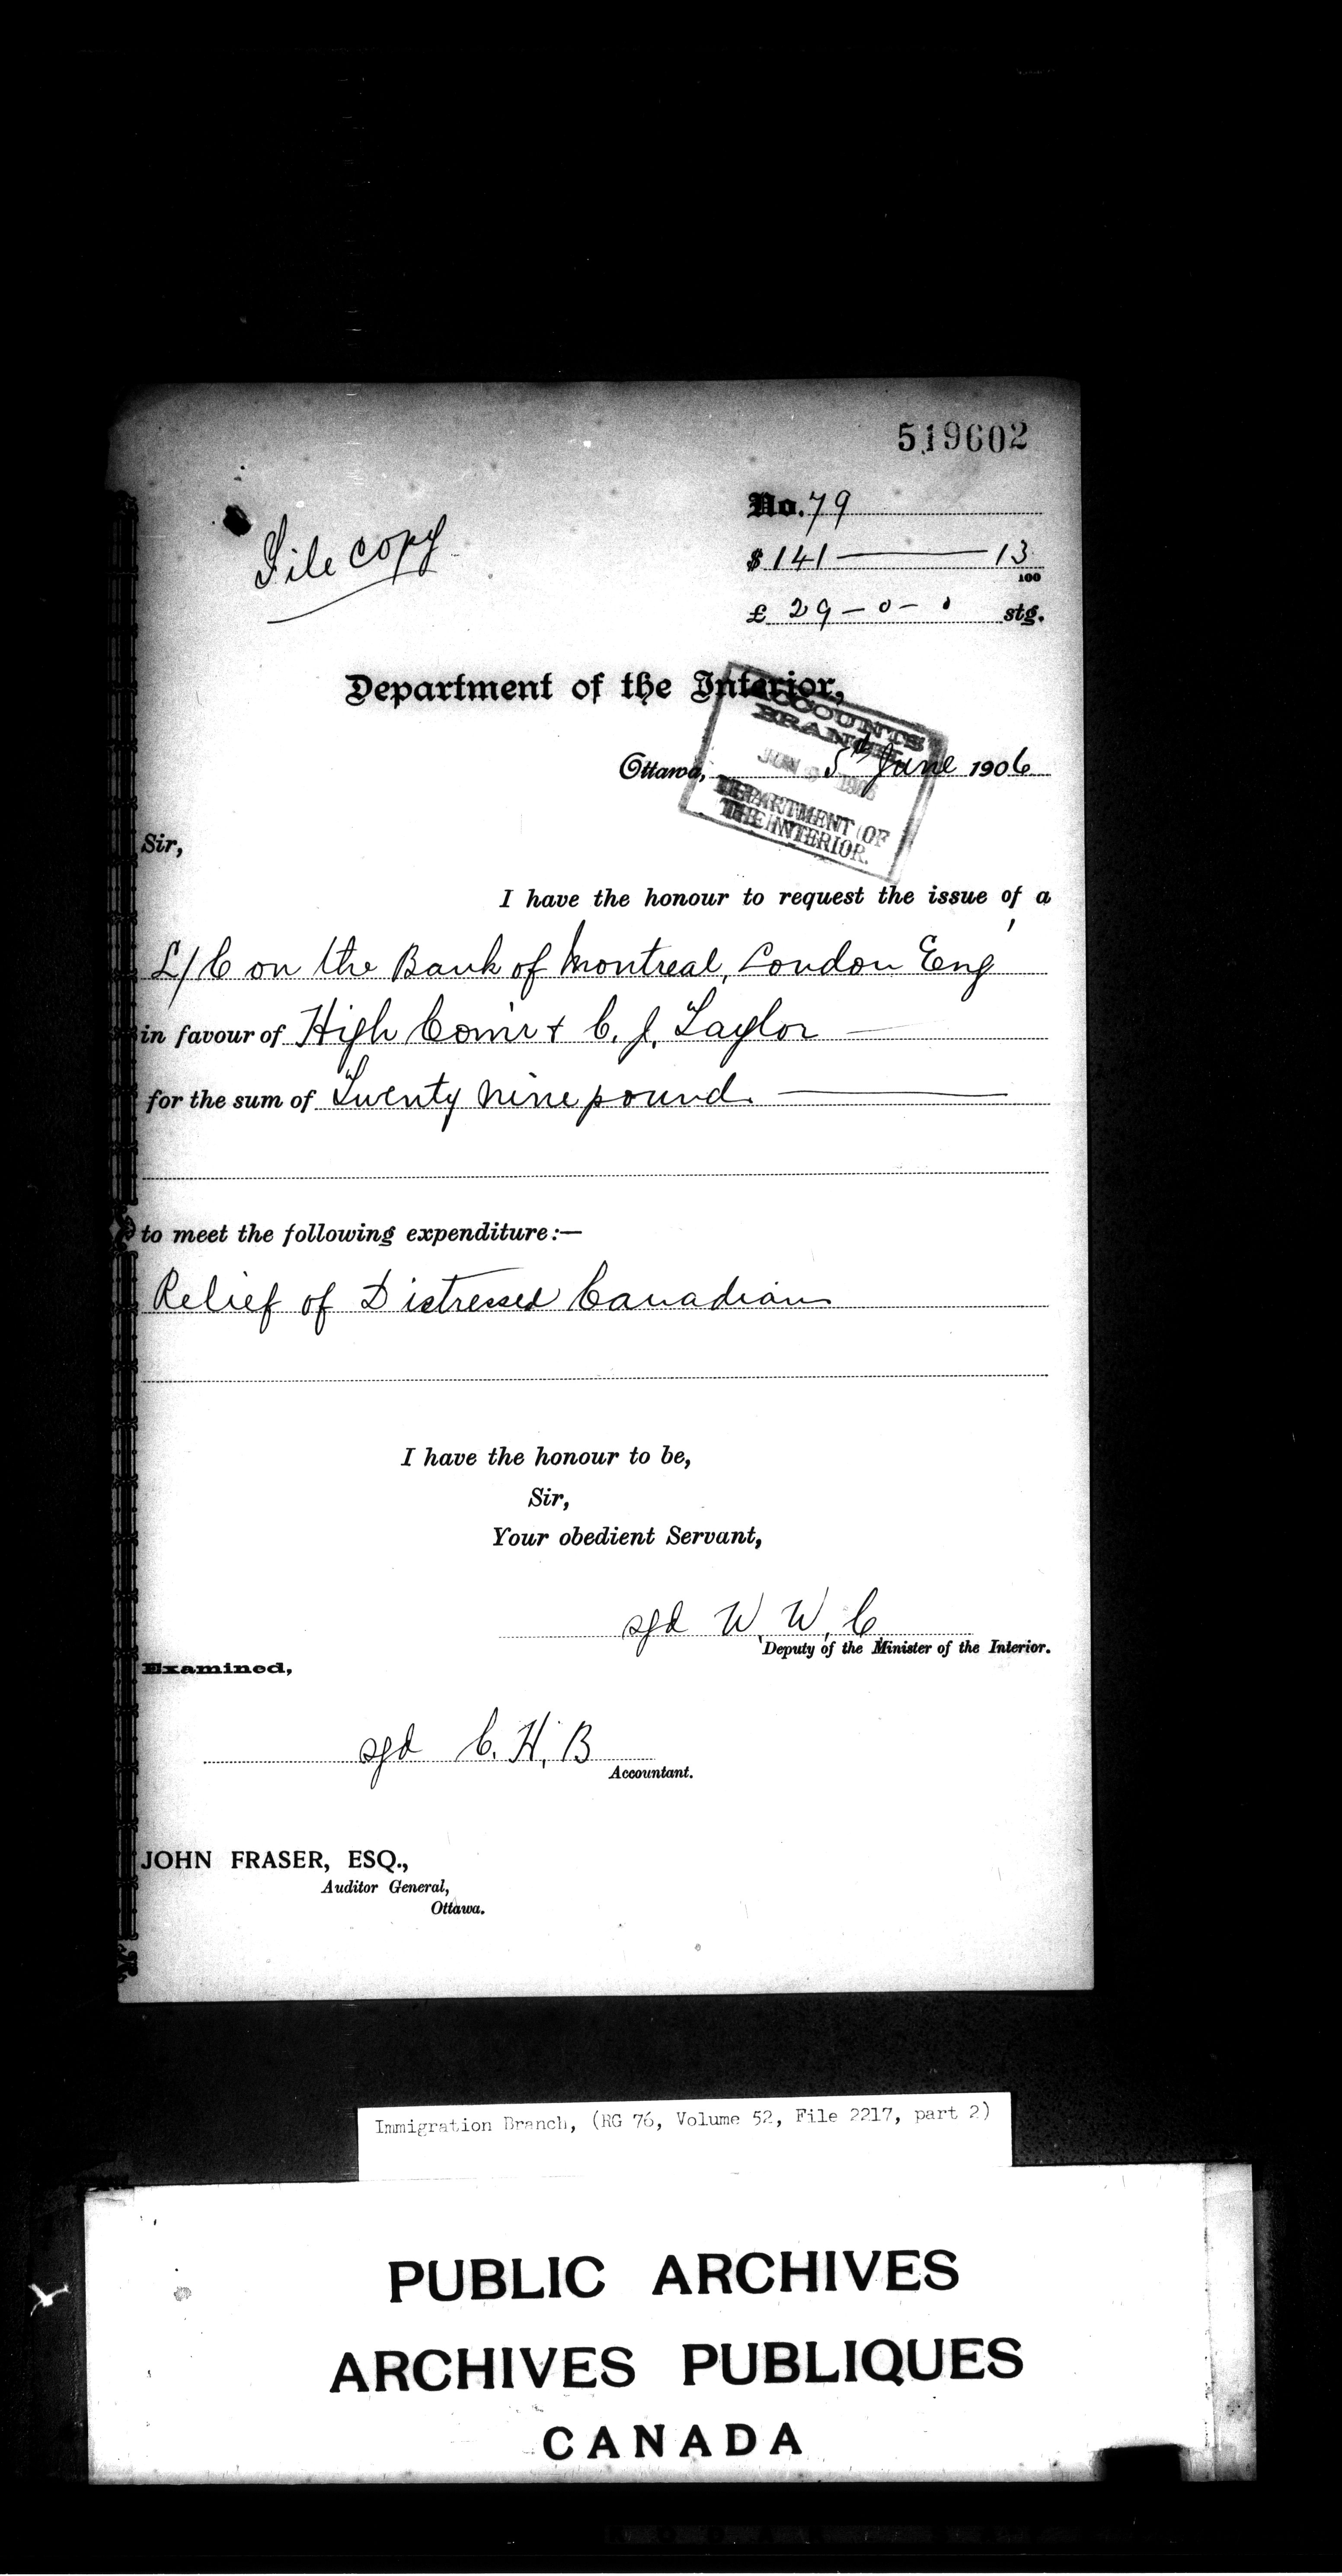 519602
File copy
No. 79
$ 141 — 13
100
£ 29 - 0 - 0 stg.
Department of the Interior,
ACCOUNTS
BRANCH
Ottawa, 5th June 1906
JUN 1906
DEPARTMENT OF
THE INTERIOR.
Sir,
I have the honour to request the issue of a
L/C on the Bank of Montreal, London Eng
in favour of High Com'r + C. J. Taylor
for the sum of Twenty nine pounds
to meet the following expenditure:—
Relief of Distressed Canadians
I have the honour to be,
Sir,
Your obedient Servant,
sgd W. W. C
Deputy of the Minister of the Interior.
Examined,
sgd C. H. B
Accountant.
JOHN FRASER, ESQ.,
Auditor General,
Ottawa.
Immigration Branch, (RG 76, Volume 52, File 2217, part 2)
PUBLIC ARCHIVES
ARCHIVES PUBLIQUES
CANADA